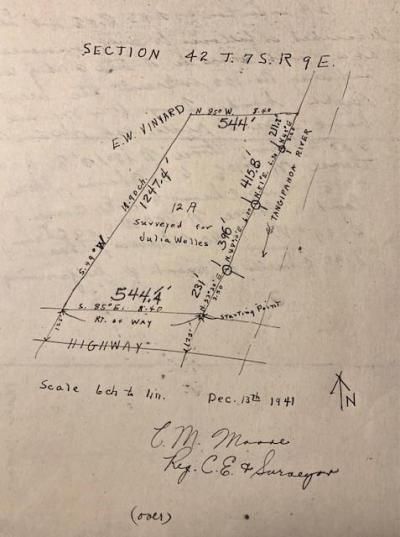 SECTION 42 T. 7 S. R 9 E.
E.W. VINYARD
N 85° W. 8.40
544'
211.2'
415.8'
TANGIPAHOA RIVER
18.90 ch.
1247.4'
12 A
surveyed for
Julia Welles
396'
S. 49° W.
231'
544.4'
S. 85° E. 8.40
Rt. of WAY
Starting Point
HIGHWAY
Scale 6ch to 1in. Dec. 13th 1941
N
C. M. Moore
Reg. C.E. & Surveyor
(over)